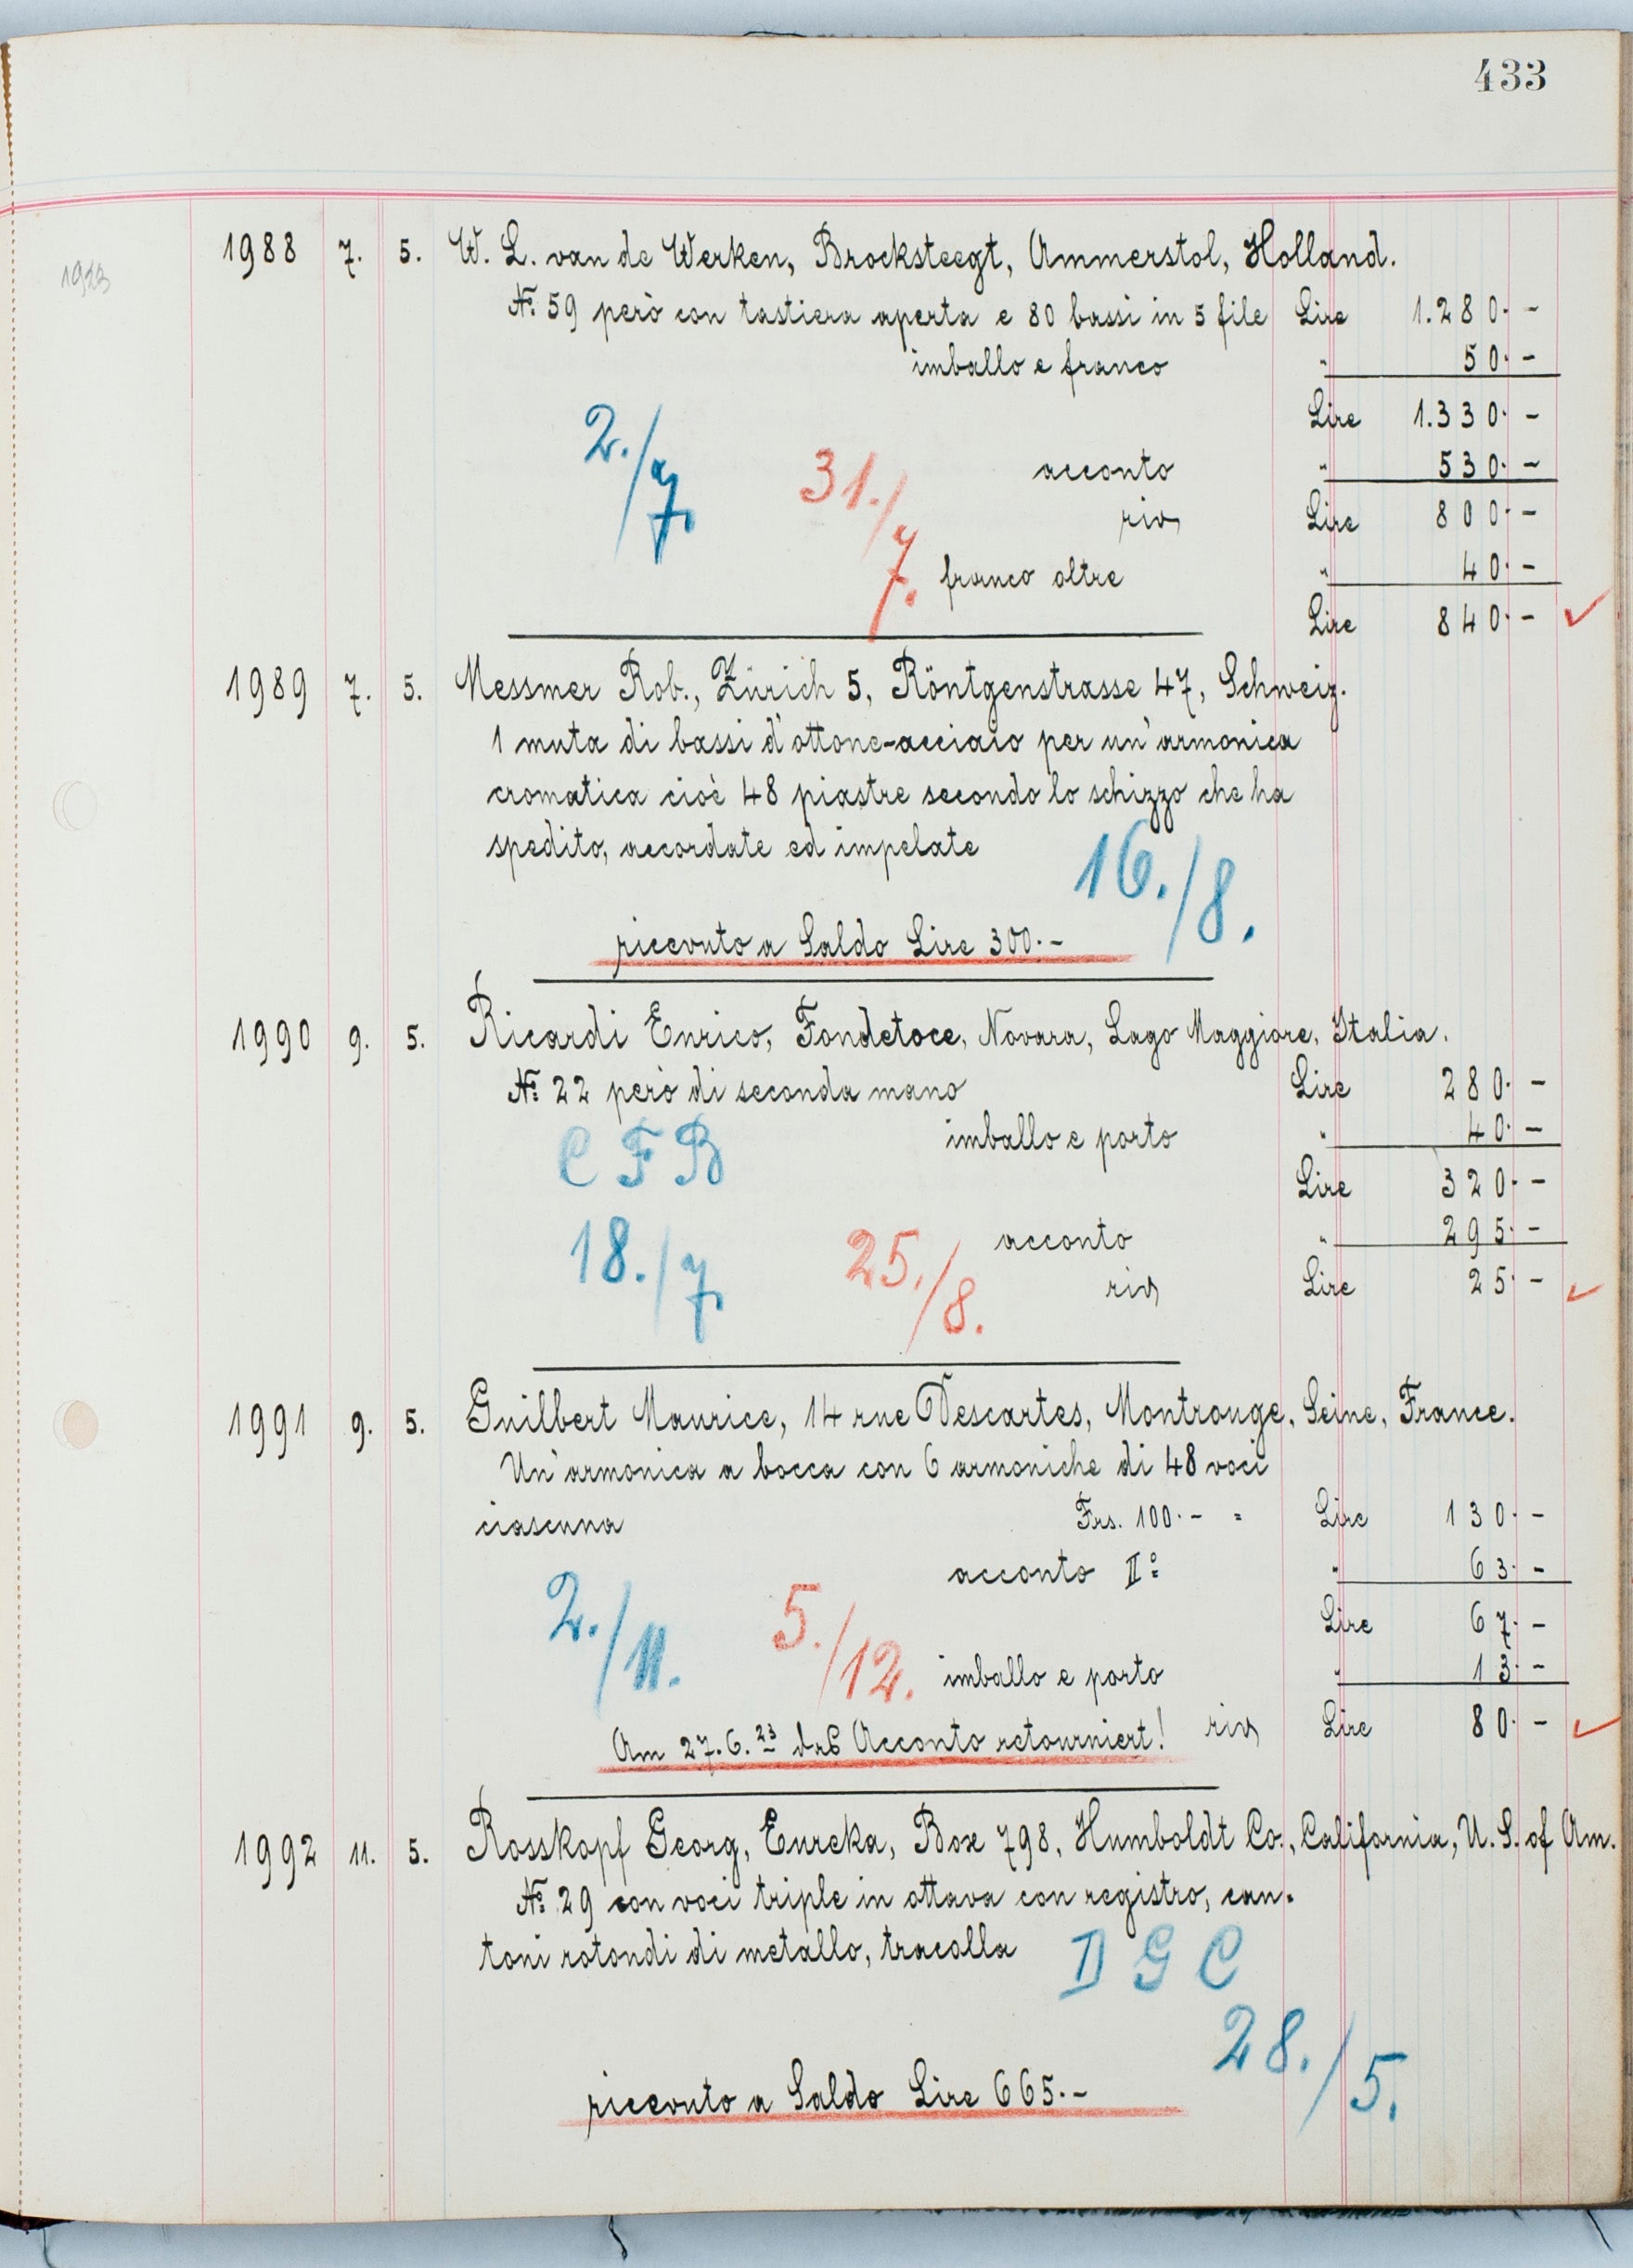 433
1923
1988 7. 5. W. L. van de Werken, Brocksteegt, Ammerstol, Holland.
№ 59 però con tastiera aperta e 80 bassi in 5 file Lire 1.280.-
imballo e franco " 50.-
Lire 1.330.-
2./7. 31./7. acconto " 530.-
Lire 800.-
franco oltre " 40.-
Lire 840.- ✓
1989 7. 5. Messmer Rob., Zürich 5, Röntgenstrasse 47, Schweiz.
1 muta di bassi d'ottone-acciaio per un'armonica
cromatica cioè 48 piastre secondo lo schizzo che ha
spedito, accordate ed impelate
16./8.
ricevuto a Saldo Lire 300.-
1990 9. 5. Ricardi Enrico, Fondetoce, Novara, Lago Maggiore, Italia.
№ 22 però di seconda mano Lire 280.-
imballo e porto " 40.-
C F B
Lire 320.-
18./7. 25./8. acconto " 295.-
Lire 25.- ✓
1991 9. 5. Guilbert Maurice, 14 rue Descartes, Montrouge, Seine, France.
Un'armonica a bocca con 6 armoniche di 48 voci
ciascuna Frs. 100.- = Lire 130.-
acconto II° " 63.-
2./11. 5./12. Lire 67.-
imballo e porto " 13.-
Am 27.6.23 das Acconto retourniert! Lire 80.- ✓
1992 11. 5. Rosskopf Georg, Eureka, Box 798, Humboldt Co., California, U. S. of Am.
№ 29 con voci triple in ottava con registro, can-
toni rotondi di metallo, tracolla
D G C
28./5.
ricevuto a Saldo Lire 665.-